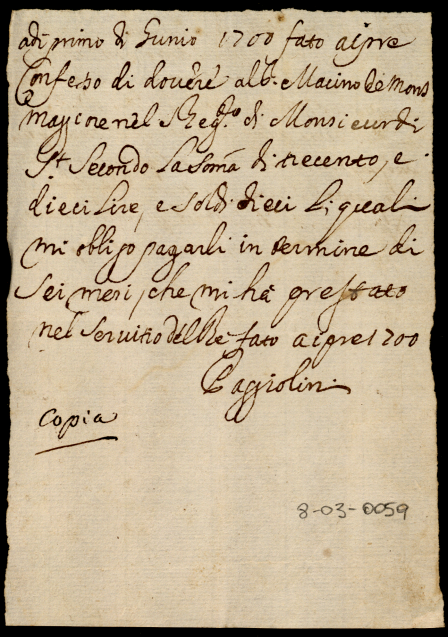 adi primo di Gunio 1700 fato aipre
Confesso di dovere al S.r Macino de Mons
maggiore nel Reg.to di Monsieur di
S.t Secondo La somã di trecento, e
dieci Lire, e soldi dieci Li quali
mi obligo pagarli in termine di
sei mesi, che mi ha prestato
nel servitio del Re fato aipre 1700
Paggiolini
Copia
8-03-0059